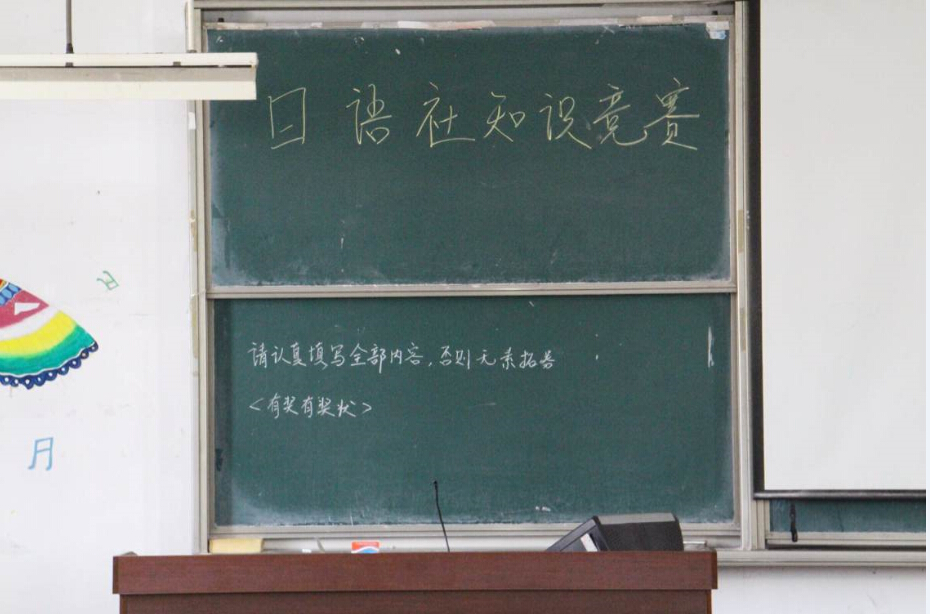 日语社知识竞赛
请认真填写全部内容,否则无素拓券
<有奖有奖状>
月